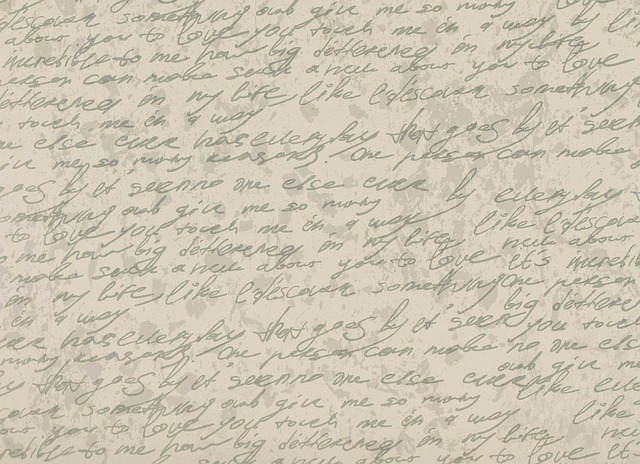 discover something and give me so many
about you to love you touch me in a way by
incredible to me how big defferened in my life
person can make such a new about you to love
defferened in my life, like I discover something
touch me in a way
one else ever has everyday that goes by it's seen
give me so many reasons. One person can make
goes by it's seen no one else ever by everyday
something and give me so many
to love you touch me in a way like I discover
me how big defferened in my life, new about
make such a new about you to love it's incredible
in my life, like I discover something One person
in a way big defferened
ever has everyday that goes by it's seen you touch
many reasons. One person can make no one else
and give me
that goes by it's seen no one else ever like
discover something and give me so many
about you to love you touch me in a way like
incredible to me how big defferened in my life
such a new about you to love it's